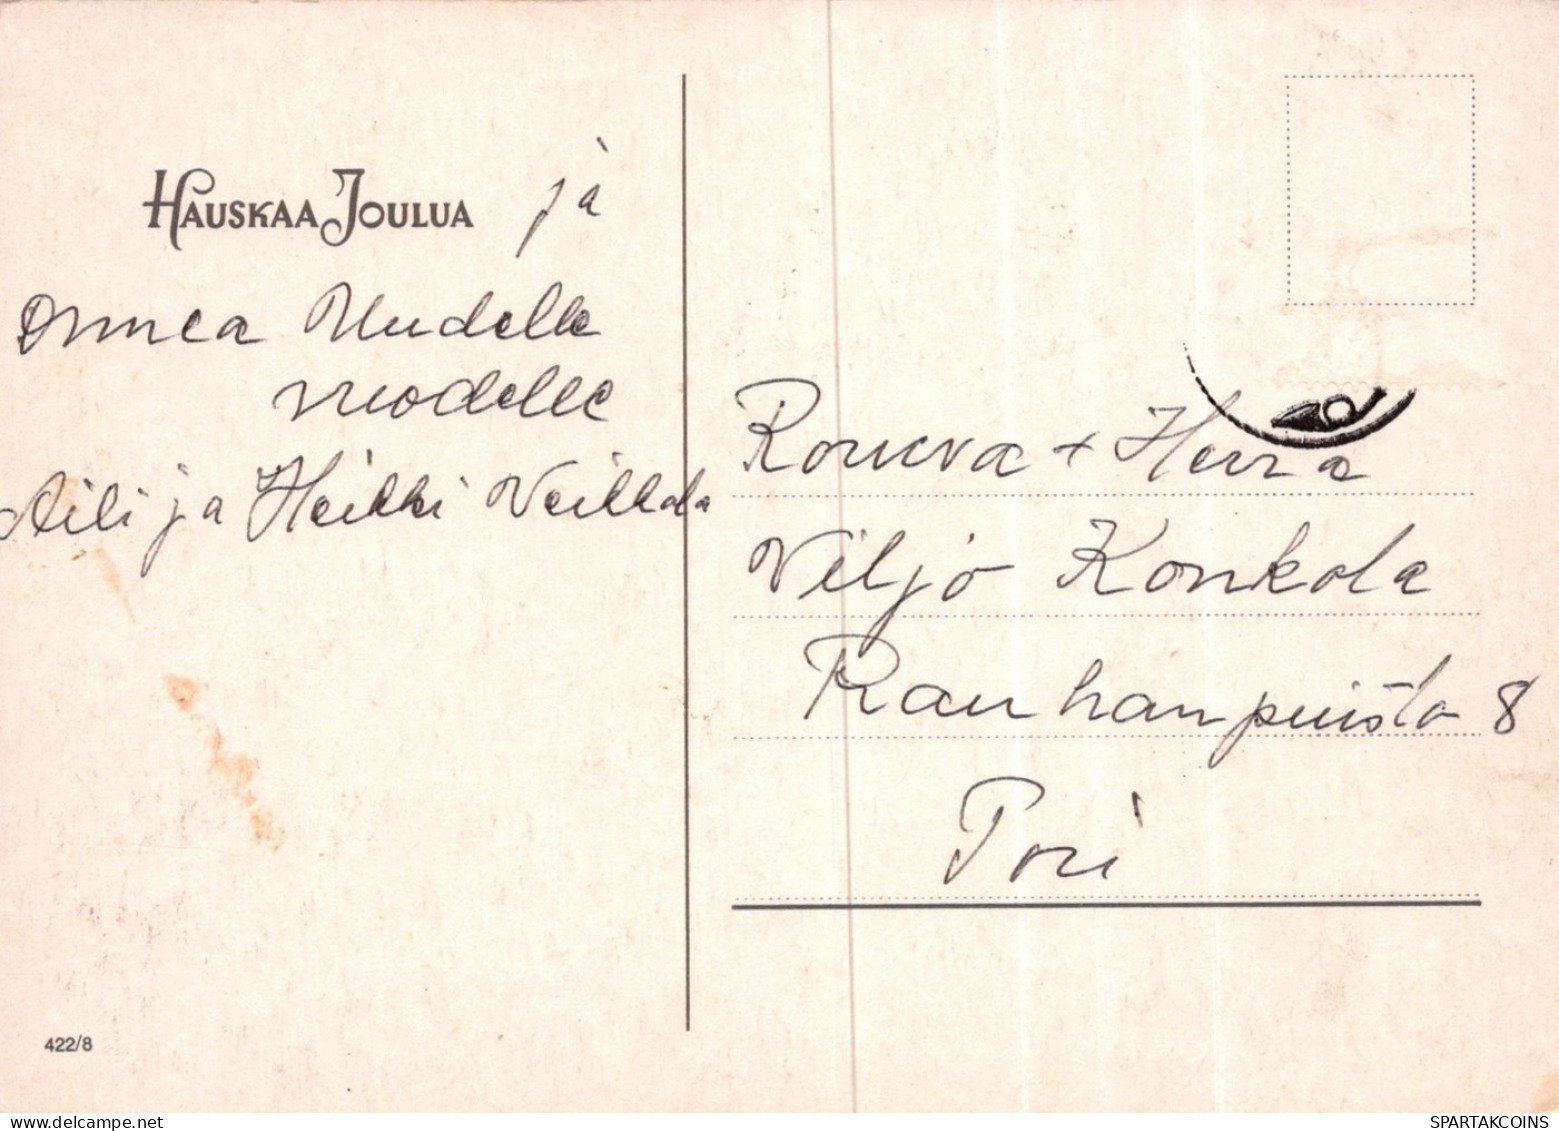 HAUSKAA JOULUA ja
Onnea Uudelle
vuodelle
Aili ja Heikki Veikkola
Rouva + Herra
Viljo Konkola
Rauhanpuisto 8
Pori
422/8
SPARTAKCOINS